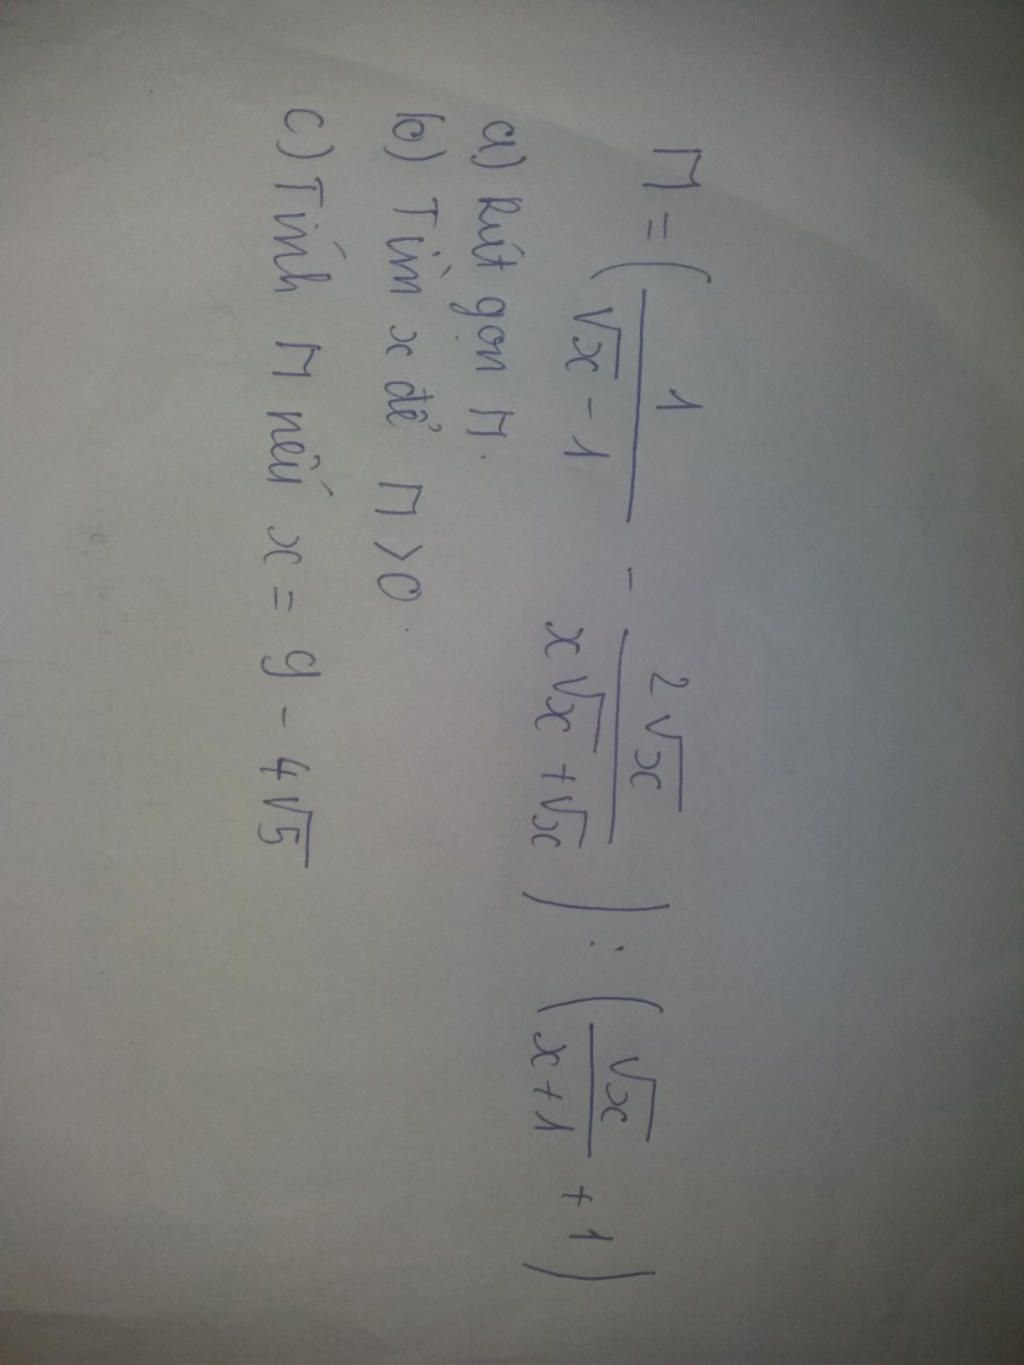 M = ( 1/(√x - 1) - 2√x/(x√x + √x) ) : ( √x/(x+1) + 1 )
a) Rút gọn M.
b) Tìm x để M > 0.
c) Tính M nếu x = 9 - 4√5